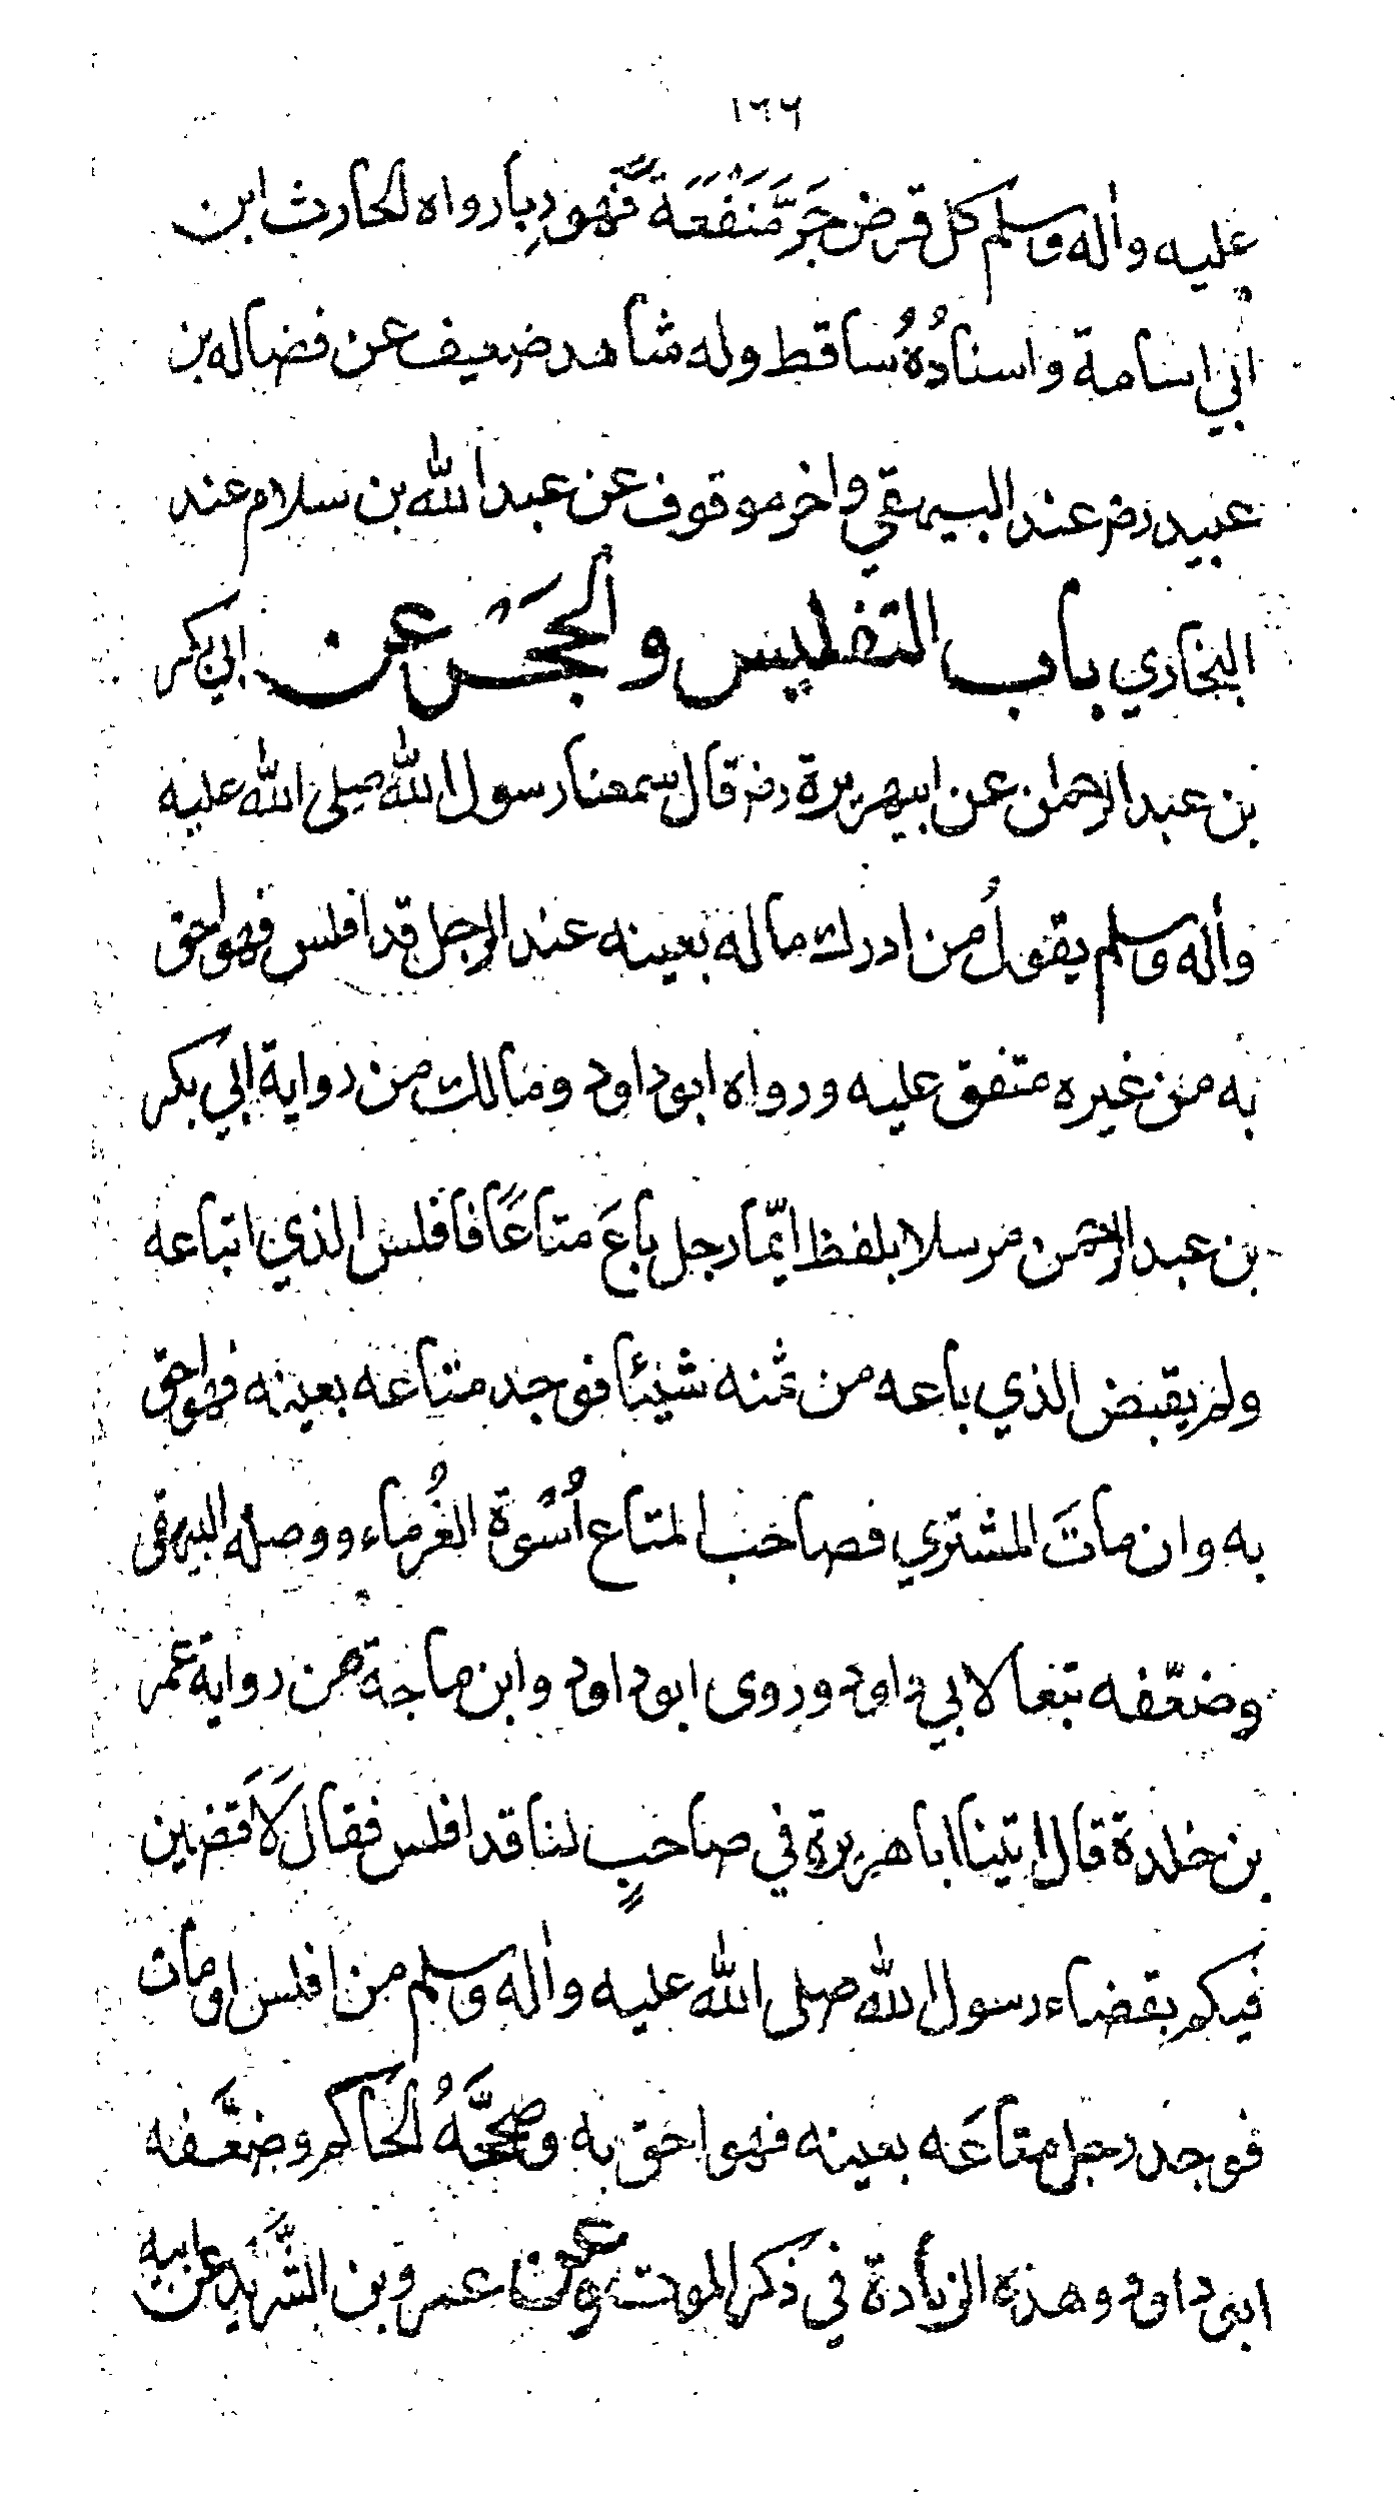 ١٦٦
عليه واله وسلم كل قرض جَرَّ مَنَفَعَةً فَهو رِبا رواه الحارث ابن
ابي اسامة واسنادُهُ ساقط وله شاهد ضعيف عن فضاله بن
عبيد رضي عند البيهقي واخر موقوف عن عبد الله بن سلام عند
البخاري باب التفليس والحَجْر عن ابي بكر
بن عبد الرحمان عن ابيهريرة رضي قال سمعنا رسول الله صلى الله عليه
واله وسلم يقولُ من ادرك ماله بعينه عند الرجل قد افلس فهو احق
به من غيره متفق عليه ورواه ابو داود ومالك من رواية ابي بكر
بن عبد الرحمن مرسلا بلفظ ايّما رجل باعَ متاعًا فافلس الذي ابتاعه
ولم يقبض الذي باعه من ثمنه شيئا فوجد متاعه بعينه فهو احق
به وان ماتَ المشتري فصاحب المتاع اُسْوة الغُرماء ووصله البيهقى
وضعّفه تبعا لابي داود وروى ابو داود وابن ماجة من رواية عمر
بن خلدة قال اتينا ابا هريرة في صاحبٍ لنا قد افلس فقال لَاَقضين
فيكم بقضاء رسول الله صلى الله عليه واله وسلم من افلس او مات
فوجد رجل متاعَه بعينه فهو احق به وصحَّحَهُ الحَاكم وضعَّفه
ابى داود وهذه الزيادة في ذكر الموت وعن عمرو بن الشَّريد عن ابيه